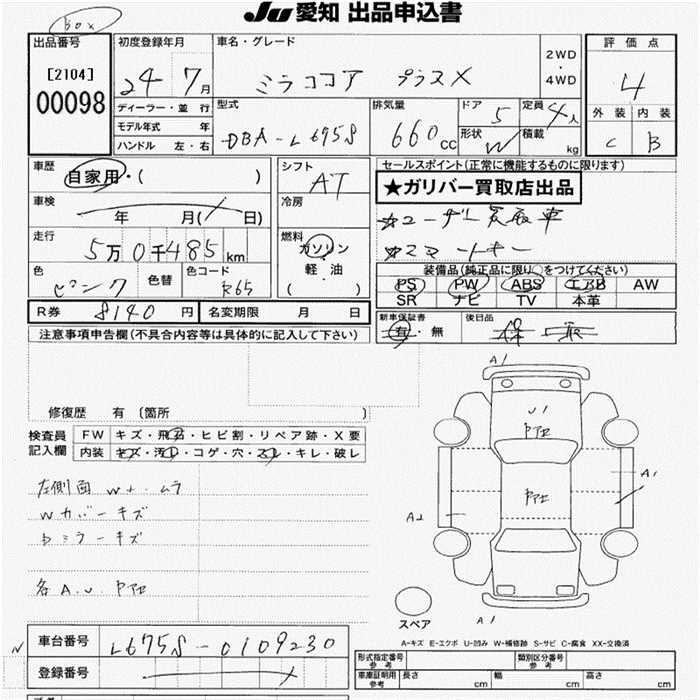 JU 愛知 出品申込書
BOX
出品番号
[2104]
00098
初度登録年月
24 7月
ディーラー・並行
モデル年式 年
ハンドル 左・右
車名・グレード
ミラココア プラスX
2WD
・
4WD
型式
DBA-L675S
排気量
660cc
ドア
5
定員
4人
形状
W
積載
kg
評価点
4
外装
C
内装
B
車歴
自家用・( )
車検
年 月( 日)
走行
5万0千485km
色
ピンク
色替
色コード
R65
シフト
AT
冷房
燃料
ガソリン
軽・油
( )
セールスポイント(正常に機能するものに限ります)
★ガリバー買取店出品
☆ユーザー買取車
☆スマートキー
装備品(純正品に限り○をつけてください)
PS PW ABS エアB AW
SR ナビ TV 本革
R券 8140円
名変期限 月 日
新車保証書
有・無
後日品
保 取
注意事項申告欄(不具合内容等は具体的に記入して下さい)
修復歴 有〔箇所 〕
検査員
記入欄
FW キズ・飛石・ヒビ割・リペア跡・X要
内装 キズ・汚れ・コゲ・穴・スレ・キレ・破レ
左側面 W ムラ
Wカバーキズ
Dミラーキズ
各A.U. P凹
A1
U1
P凹
P凹
A1
A2
A1
スペア
A-キズ E-エクボ U-凹み W-補修跡 S-サビ C-腐食 XX-交換済
N
車台番号
L675S-0109230
登録番号
形式指定番号
参考
類別区分番号
参考
車庫証明用
参考
長さ cm
幅 cm
高さ cm